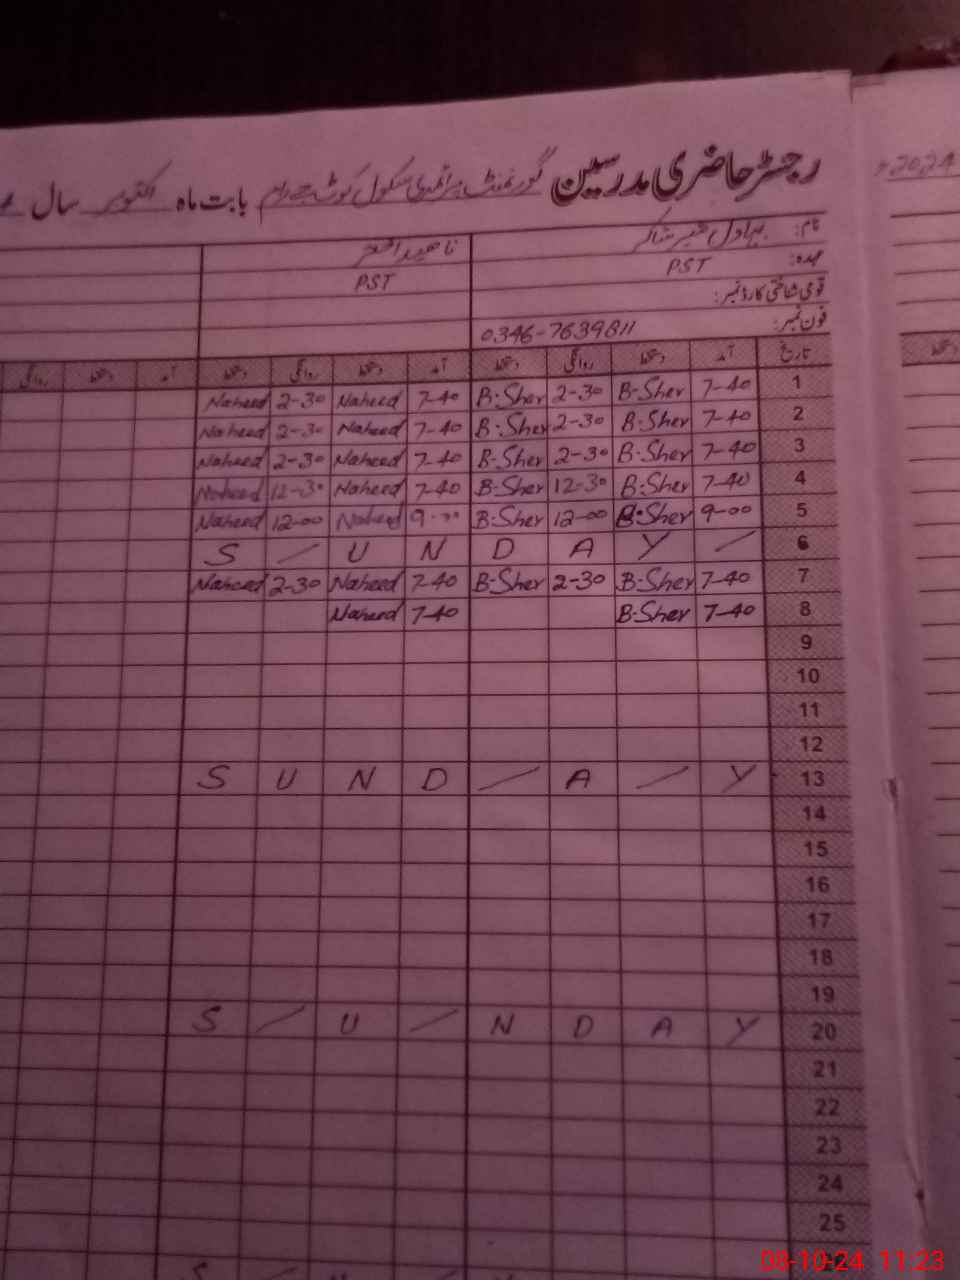 رجسٹر حاضری مدرسین گورنمنٹ پرائمری سکول بابت ماہ اکتوبر سال
2024
نام: بہادل شیر شاکر ناھید اختر
عہدہ: PST PST
قومی شناختی کارڈ نمبر:
فون نمبر: 0346-7639811
تاریخ آمد دستخط روانگی دستخط آمد دستخط روانگی دستخط آمد دستخط روانگی
دستخط
1 7-40 B-Sher 2-30 B-Sher 7-40 Naheed 2-30 Naheed
2 7-40 B-Sher 2-30 B-Sher 7-40 Naheed 2-30 Naheed
3 7-40 B-Sher 2-30 B-Sher 7-40 Naheed 2-30 Naheed
4 7-40 B-Sher 12-30 B-Sher 7-40 Naheed 12-30 Naheed
5 9-00 B-Sher 12-00 B-Sher 9-00 Naheed 12-00 Naheed
S / U N D A Y / 6
7 7-40 B-Sher 2-30 B-Sher 7-40 Naheed 2-30 Naheed
8 7-40 B-Sher 7-40 Naheed
9
10
11
12
S U N D / A / Y 13
14
15
16
17
18
19
S / U / N D A Y 20
21
22
23
24
25
S / U N D
08-10-24 11:23